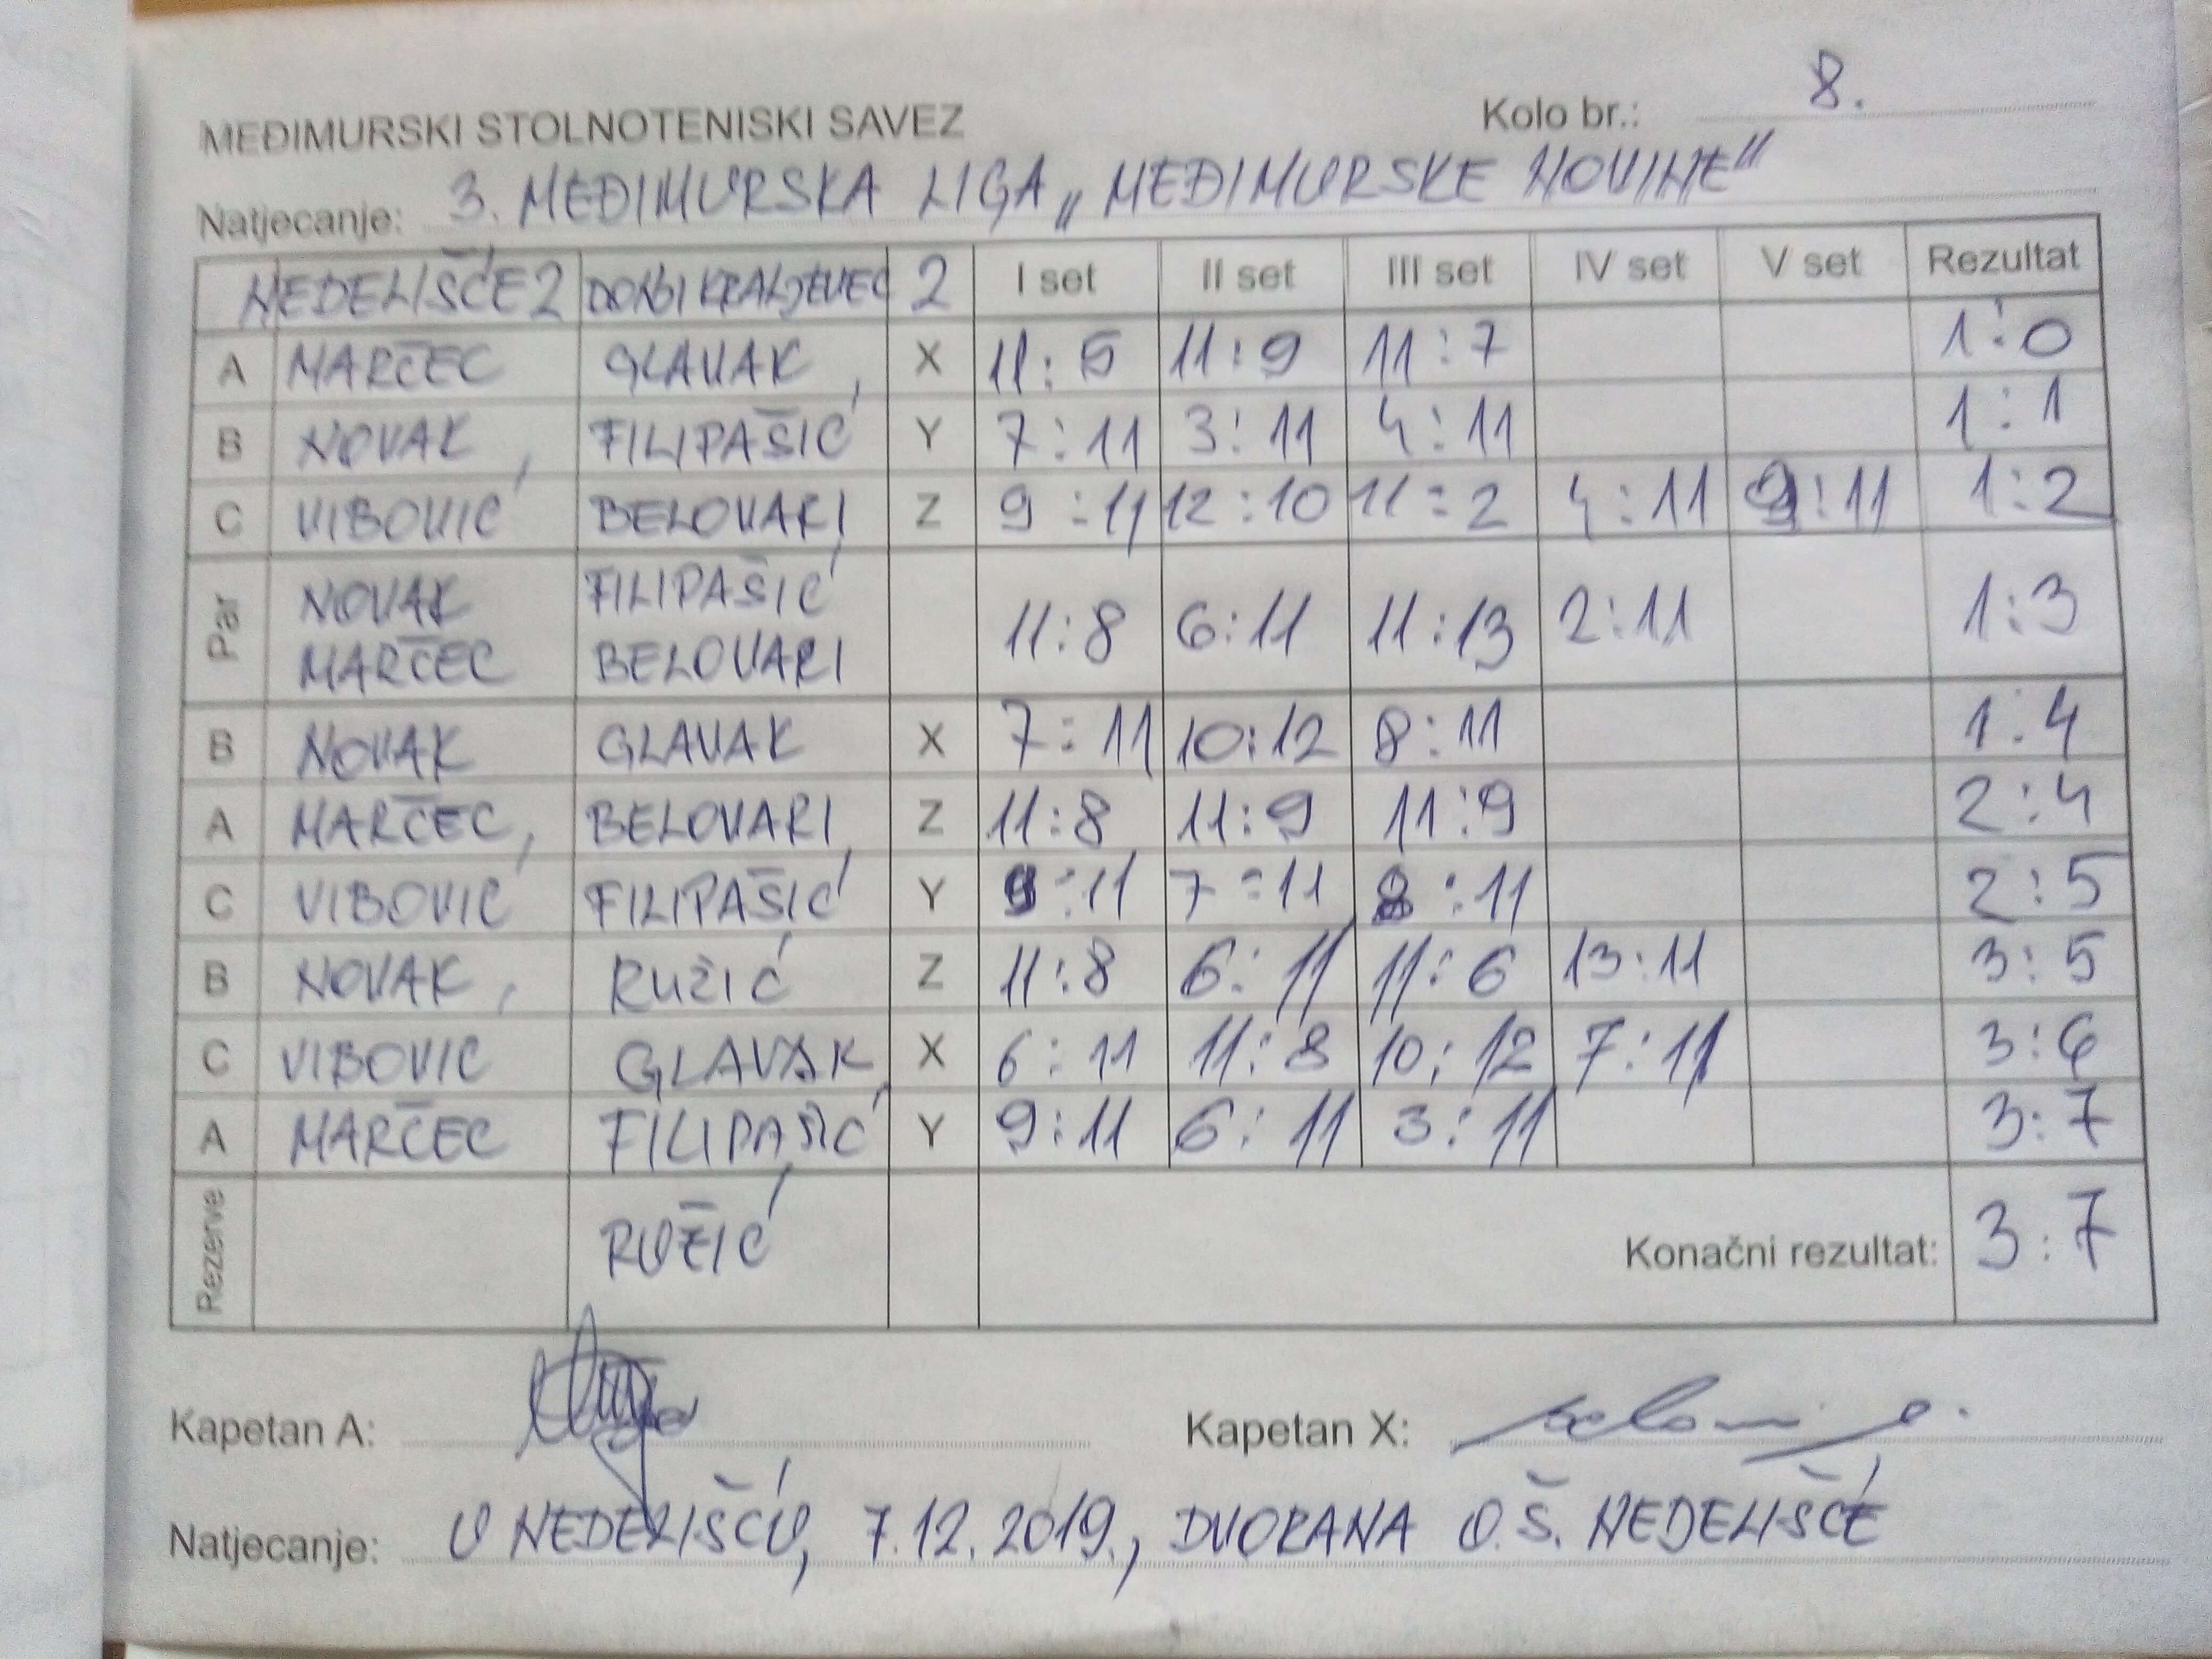 MEĐIMURSKI STOLNOTENISKI SAVEZ Kolo br.: 8.
Natjecanje: 3. MEĐIMURSKA LIGA „MEĐIMURSKE NOVINE"
NEDELIŠĆE 2 DONJI KRALJEVEC 2 I set II set III set IV set V set Rezultat
A MARČEC GLAVAK X 11:5 11:9 11:7 1:0
B NOVAK FILIPAŠIĆ Y 7:11 3:11 4:11 1:1
C VIBOVIĆ BELOVARI Z 9:11 12:10 11:2 4:11 9:11 1:2
Par NOVAK FILIPAŠIĆ 11:8 6:11 11:13 2:11 1:3
MARČEC BELOVARI
B NOVAK GLAVAK X 7:11 10:12 8:11 1:4
A MARČEC BELOVARI Z 11:8 11:9 11:9 2:4
C VIBOVIĆ FILIPAŠIĆ Y 9:11 7:11 8:11 2:5
B NOVAK RUŽIĆ Z 11:8 6:11 11:6 13:11 3:5
C VIBOVIĆ GLAVAK X 6:11 11:8 10:12 7:11 3:6
A MARČEC FILIPAŠIĆ Y 9:11 6:11 3:11 3:7
Rezerve RUŽIĆ Konačni rezultat: 3:7
Kapetan A: Kapetan X:
Natjecanje: U NEDELIŠĆU, 7.12.2019., DVORANA O.Š. NEDELIŠĆE